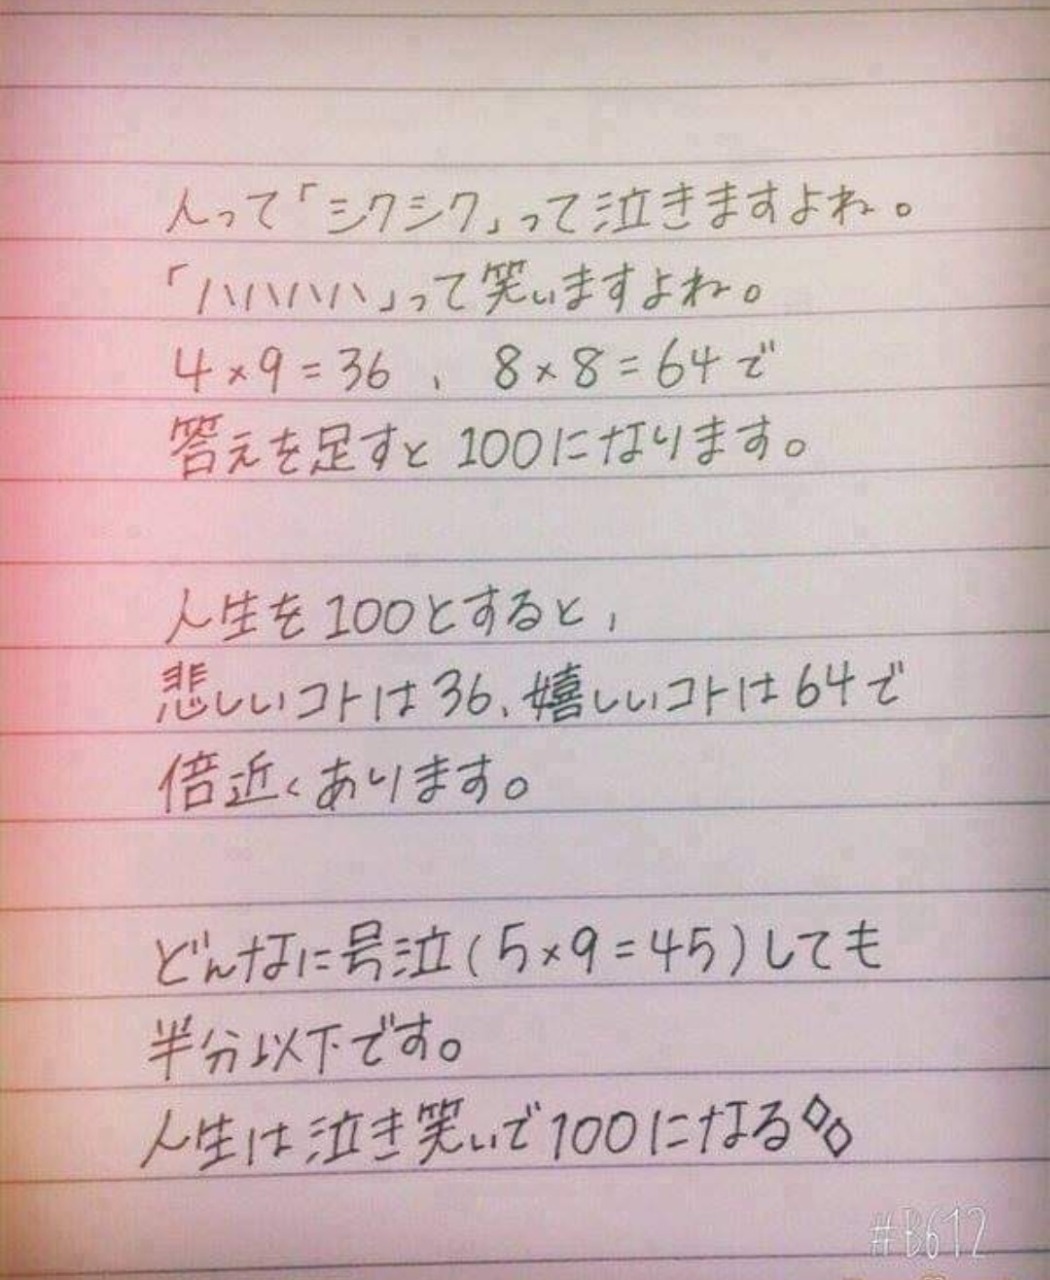 人って「シクシク」って泣きますよね。
「ハハハハ」って笑いますよね。
4×9=36、8×8=64で
答えを足すと100になります。
人生を100とすると、
悲しいコトは36、嬉しいコトは64で
倍近くあります。
どんなに号泣(5×9=45)しても
半分以下です。
人生は泣き笑いで100になる
#B612